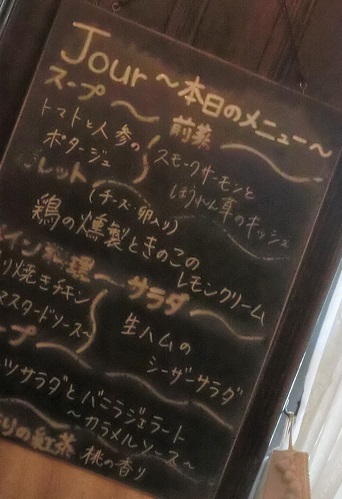 Jour～本日のメニュー～
スープ～
トマトと人参の
ポタージュ
前菜～
スモークサーモンと
ほうれん草のキッシュ
レット～
(チーズ・卵入り)
鶏の燻製ときのこの
レモンクリーム
イン料理～
り焼きチキン
マスタードソース～
サラダ～
生ハムの
シーザーサラダ
ープ～
ツサラダとバニラジェラート
～カラメルソース～
りの紅茶
桃の香り